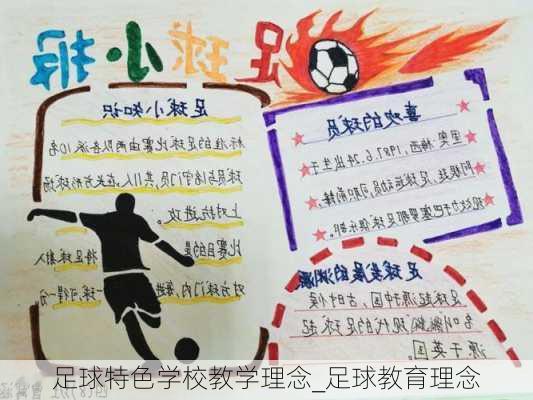 足球小报
足球小知识
标准的足球比赛由两队各派10名
球员与1名守门员,共11人,在长方形球场
上对抗进攻。
比赛目的是
将足球射入
对方球门内,每进一球可得一分。
喜欢的球员
里奥·梅西,1987.6.24出生于
阿根廷,足球运动员,司职前锋
现效力于巴塞罗那足球俱乐部。
足球发展的渊源
足球起源中国,古时候
名叫蹴鞠,现代的足球起
源于英国。
足球特色学校教学理念_足球教育理念